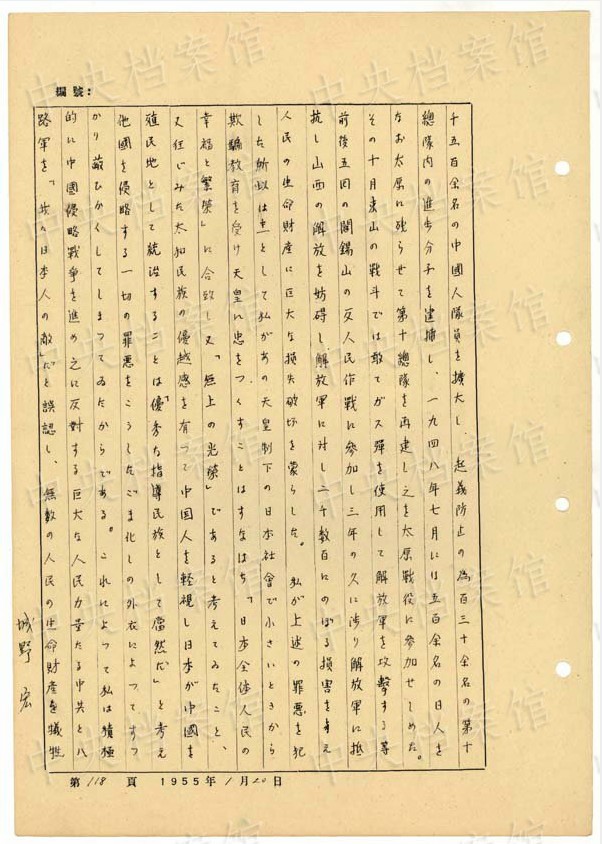 編號：
千五百余名の中國人隊員を擴大し、起義防止の為百三十余名の第十
總隊内の進步分子を逮捕し、一九四八年七月には五百余名の日人を
なお太原に残らせて第十總隊を再建し之を太原戰役に参加せしめた。
その十月東山の戰斗では敢てガス弾を使用して解放軍を攻撃する等
前後五回の閻錫山の反人民作戰に参加し三年の久に渉り解放軍に抵
抗し山西の解放を妨碍し解放軍に対し二千数百にのぼる損害を与え
人民の生命財産に巨大な損失破坏を蒙らした。 私が上述の罪悪を犯
した所以は主として私があの天皇制下の日本社會で小さいときから
欺騙教育を受け天皇に忠をつくすことはすなはち「日本全体人民の
幸福と繁榮」に合致し又「無上の光榮」であると考えてゐたこと、
又狂じみた大和民族の優越感を有つて中国人を軽視し日本が中國を
殖民地として統治することは「優秀な指導民族として當然だ」と考え
他國を侵略する一切の罪悪をこうしたごま化しの外衣によつてすつ
かり蔽ひかくしてしまつてゐたからである。これによつて私は積極
的に中國侵略戰爭を進め之に反対する巨大な人民力量たる中共と八
路軍を「我々日本人の敵」だと誤認し、無数の人民の生命財産を犠牲
城野宏
第 118 頁 1955年 1月20日
中央档案馆